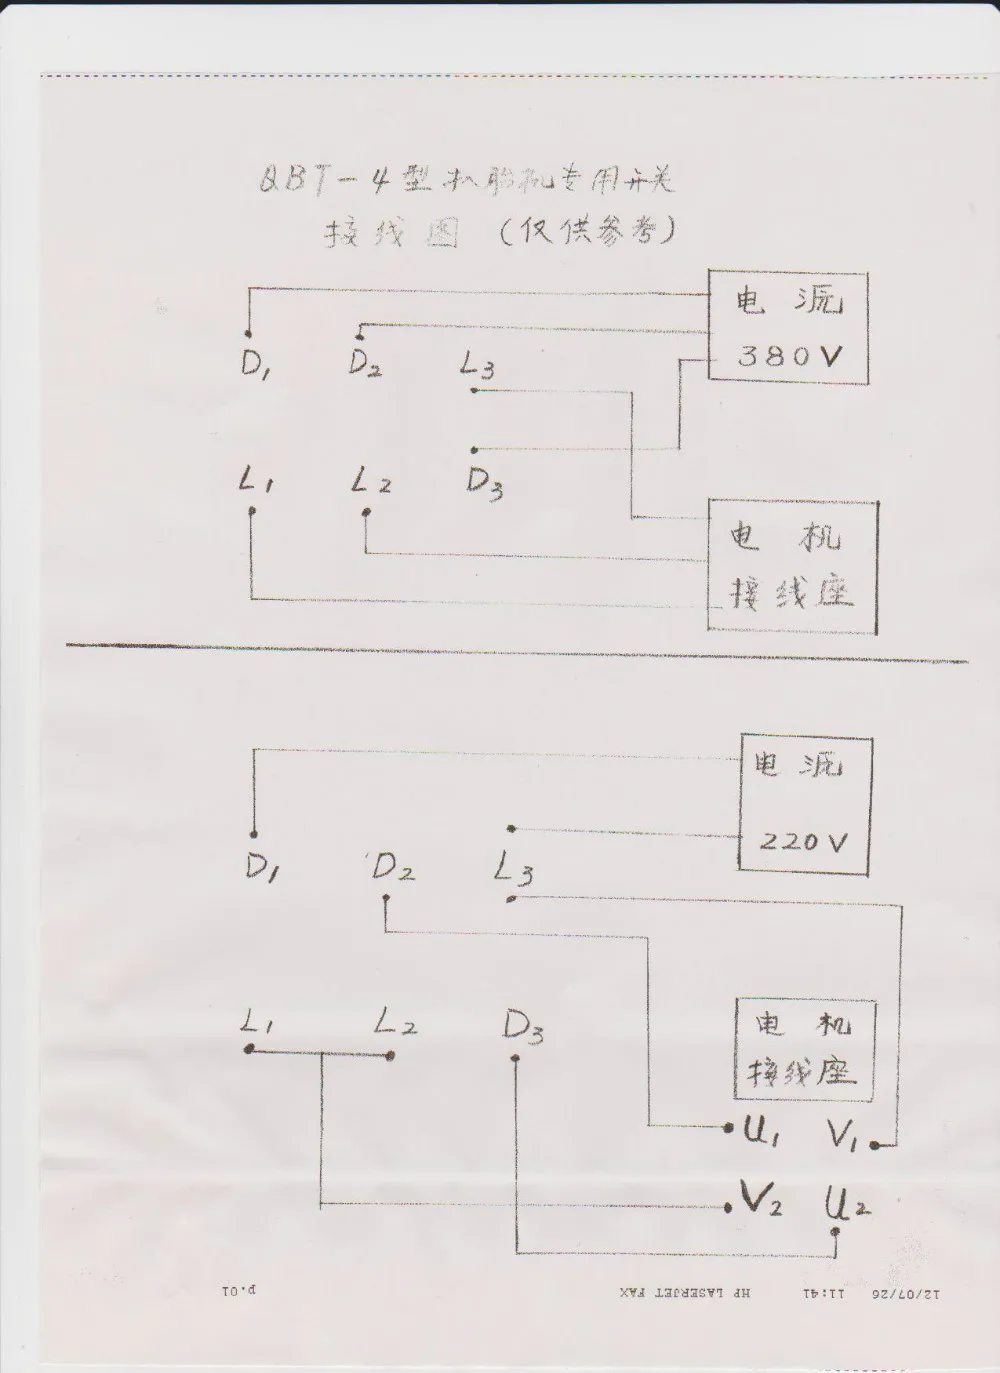 QBT-4型扒胎机专用开关
接线图（仅供参考）
电源
380V
D1 D2 L3
L1 L2 D3
电机
接线座
电源
220V
D1 D2 L3
L1 L2 D3
电机
接线座
U1 V1
V2 U2
12/07/26 11:41 HP LASERJET FAX p.01